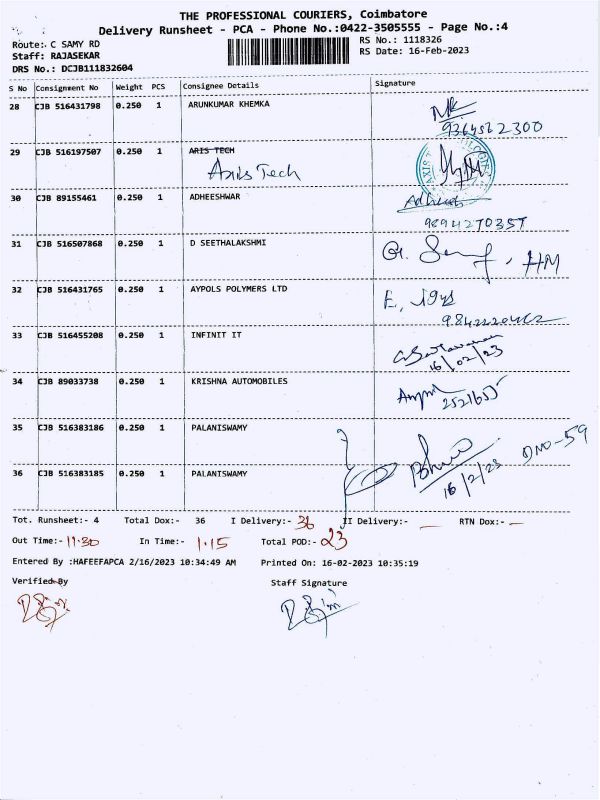 THE PROFESSIONAL COURIERS, Coimbatore
Delivery Runsheet - PCA - Phone No.:0422-3505555 - Page No.:4
Route:. C SAMY RD
RS No.: 1118326
Staff: RAJASEKAR
RS Date: 16-Feb-2023
DRS No.: DCJB111832604
S No Consignment No Weight PCS Consignee Details Signature
28 CJB 516431798 0.250 1 ARUNKUMAR KHEMKA
9364522300
29 CJB 516197507 0.250 1 ARIS TECH
Axis Tech
30 CJB 89155461 0.250 1 ADHEESHWAR
9894270357
31 CJB 516507868 0.250 1 D SEETHALAKSHMI
HM
32 CJB 516431765 0.250 1 AYPOLS POLYMERS LTD
33 CJB 516455208 0.250 1 INFINIT IT
16/02/23
34 CJB 89033738 0.250 1 KRISHNA AUTOMOBILES
2521655
35 CJB 516383186 0.250 1 PALANISWAMY
DNO-59
36 CJB 516383185 0.250 1 PALANISWAMY
16/2/23
Tot. Runsheet:- 4 Total Dox:- 36 I Delivery:- 36 II Delivery:- — RTN Dox:- —
Out Time:- 11.30 In Time:- 1.15 Total POD:- 23
Entered By :HAFEEFAPCA 2/16/2023 10:34:49 AM Printed On: 16-02-2023 10:35:19
Verified By Staff Signature